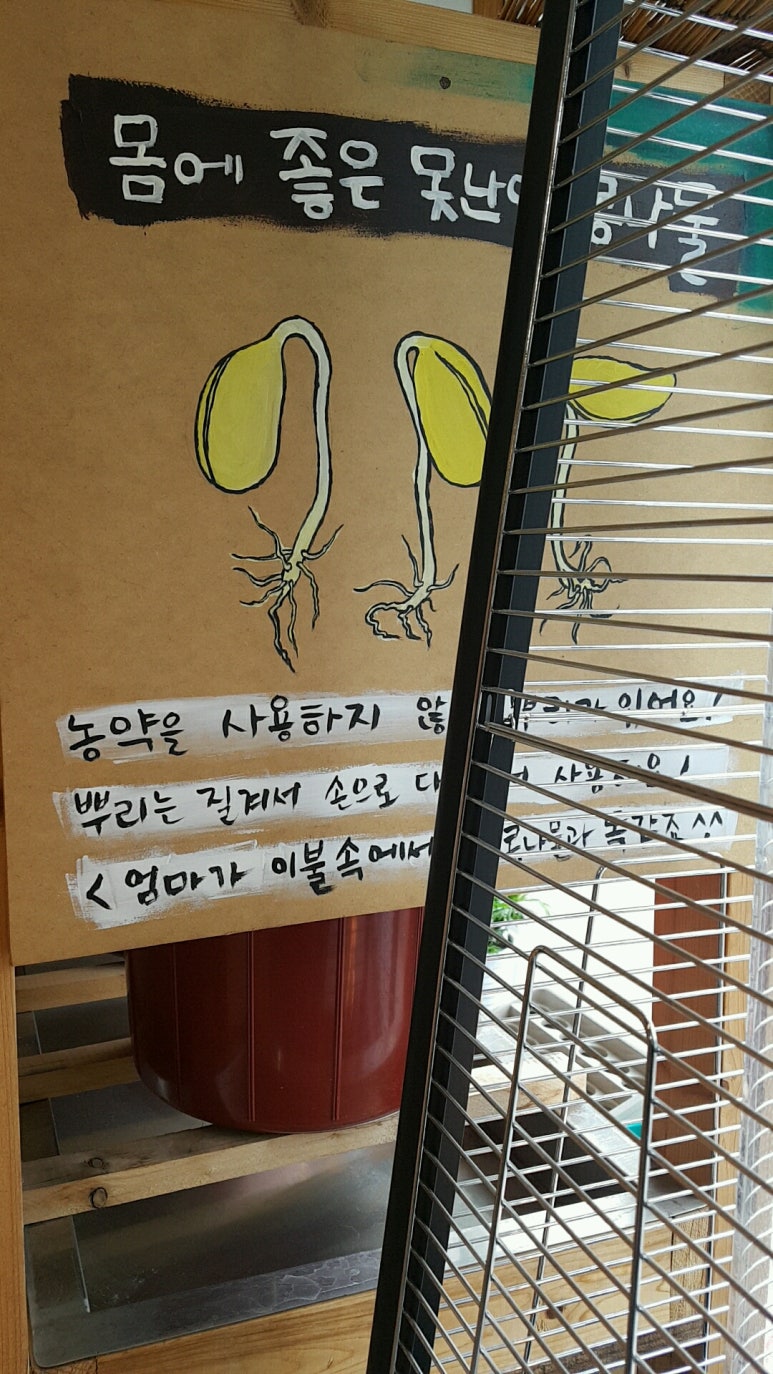 몸에 좋은 못난이 콩나물
농약을 사용하지 않 뿌리가 있어요!
뿌리는 질겨서 손으로 다 사용해요!
<엄마가 이불속에서 콩나물과 똑같죠^^